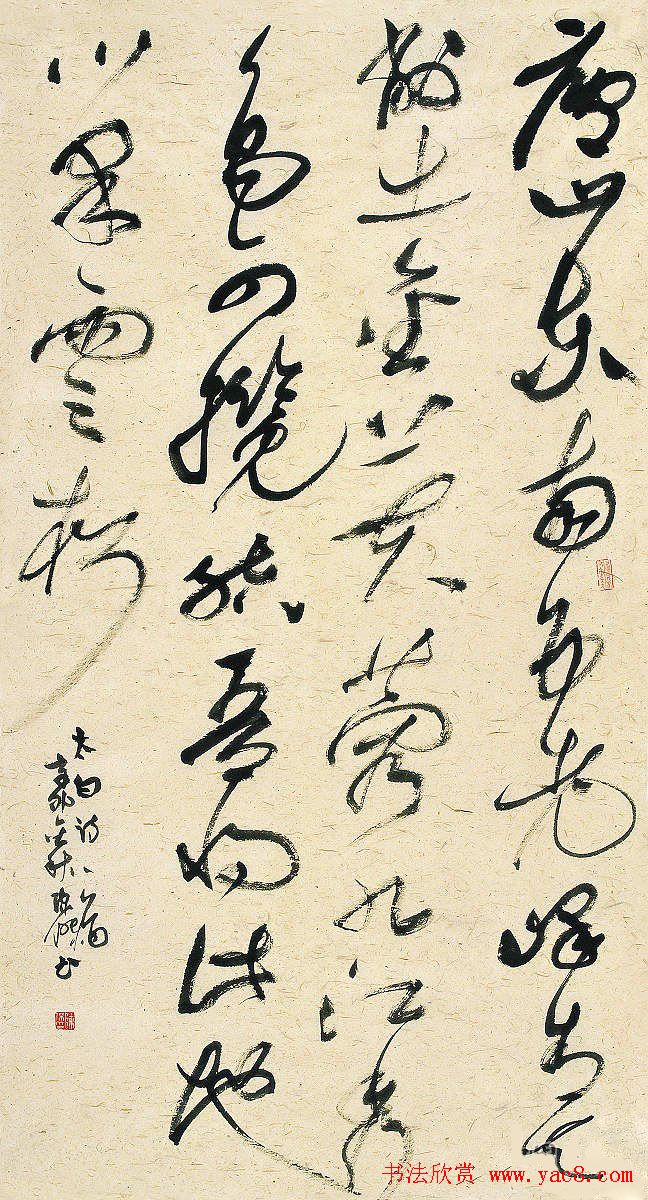 廬山東南五老峰青天
削出金芙蓉九江秀
色可攬結吾將此地
巢雲松
太白詩
书法欣赏 www.yac8.com